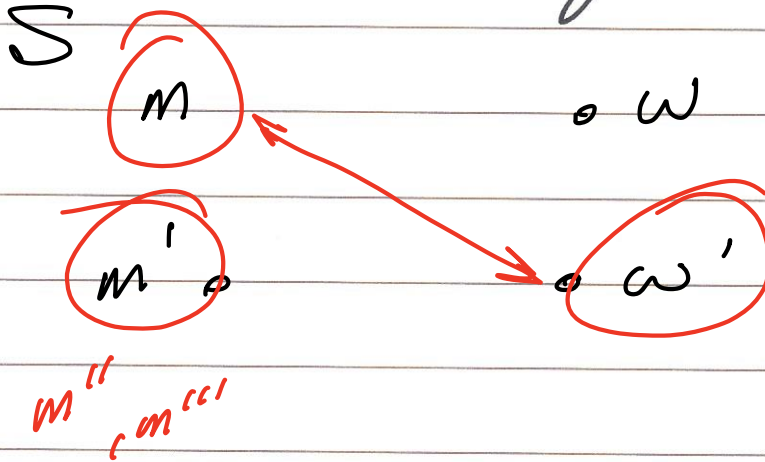 S
m w
m' w'
m'' , m'''